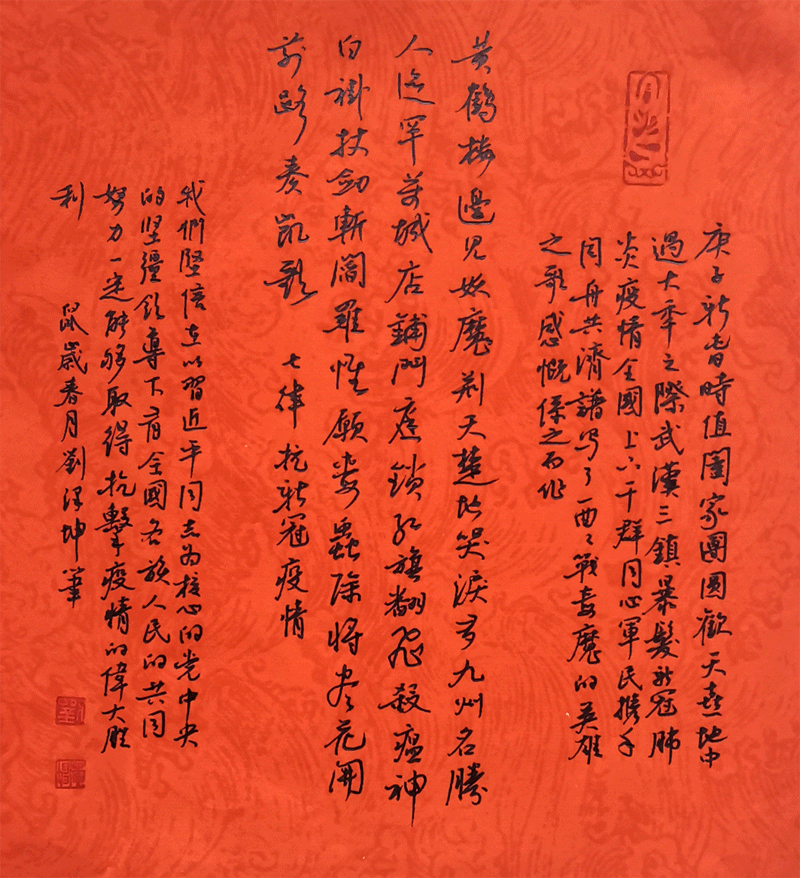 庚子新旾時值闔家團圓歡天喜地中
過大年之際武漢三鎮暴髮新冠肺
炎疫情全國上下干群同心軍民携手
同舟共濟譜写了一曲〻戰毒魔的英雄
之歌感慨係之而作
黃鶴樓邊見妖魔荆天楚地哭淚多九州名勝
人迹罕萬城店鋪門庭鎖紅旗翻飛殺瘟神
白褂扙劍斬閻羅惟願毒蟲除將盡花開
前路奏凱歌 七律 抗新冠疫情
我們堅信在以習近平同志为核心的党中央
的坚彊領導下有全國各族人民的共同
努力一定能够取得抗擊疫情的偉大勝
利
鼠歲春月劉澤坤筆